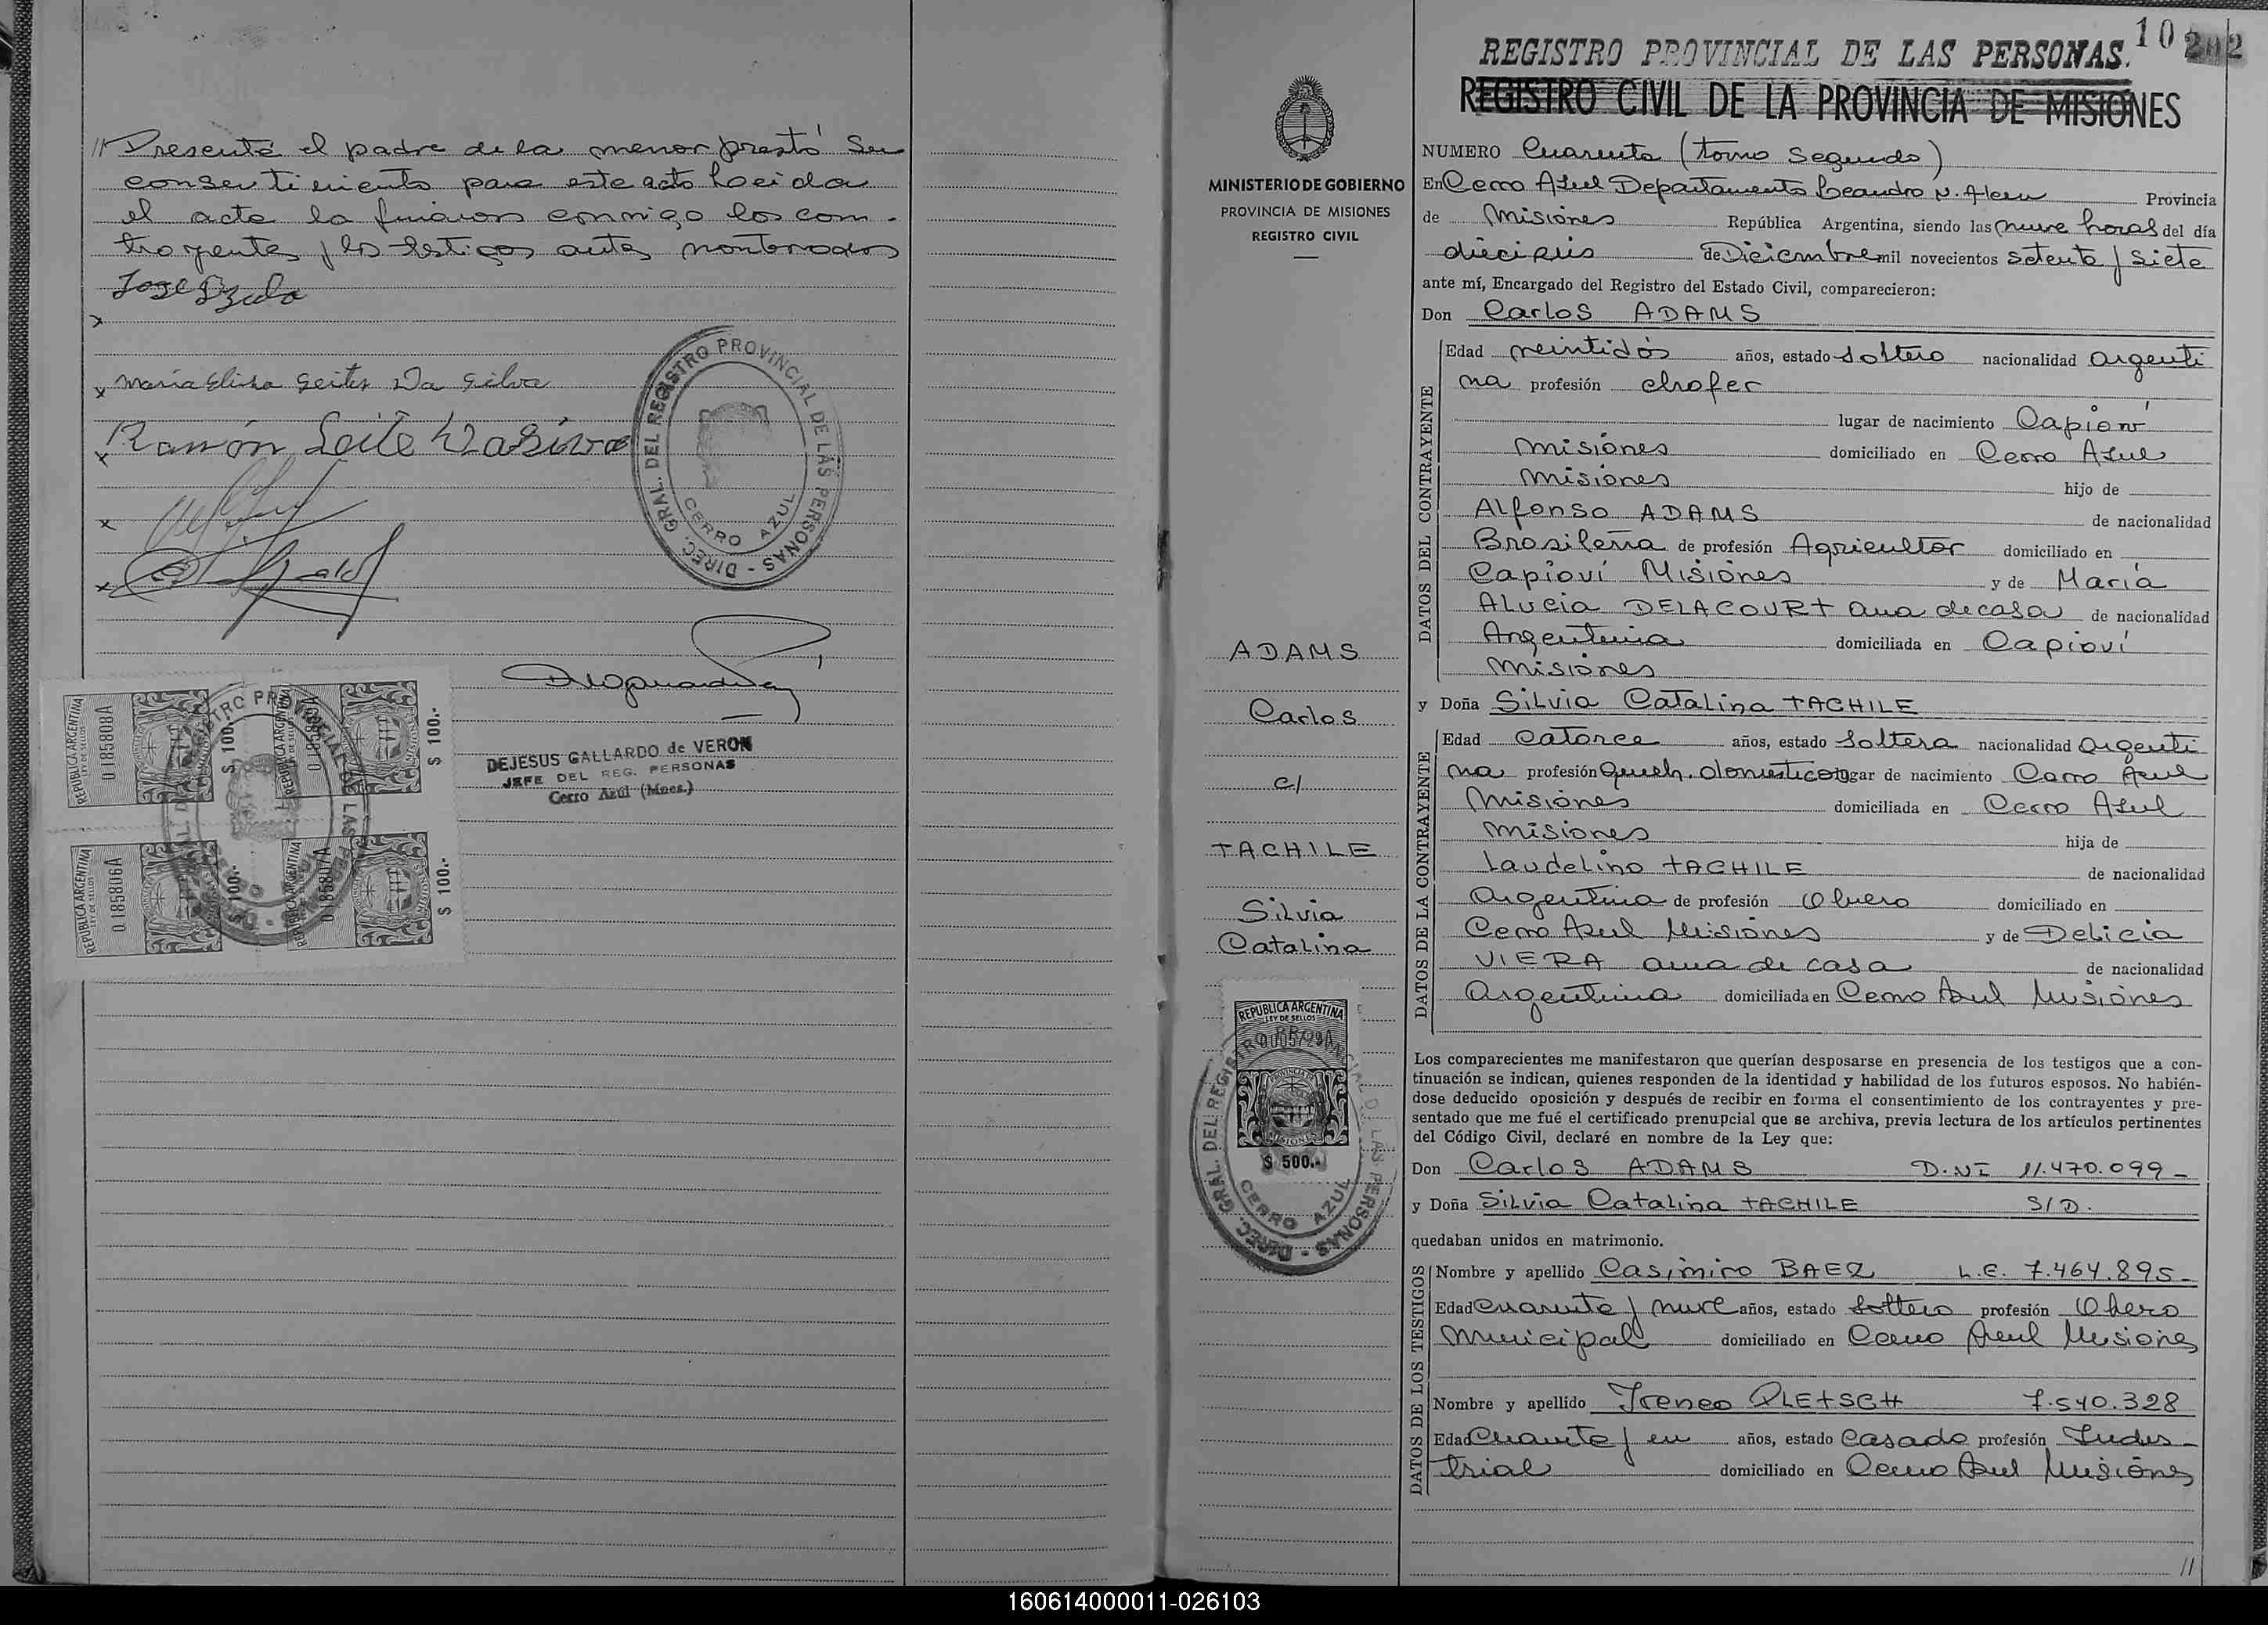 // Presente el padre de la menor prestó su
consentimiento para este acto Leida
el acta la firmaron conmigo los con-
trayentes y los testigos antes nombrados
x
x María Elisa Leites Da Silva
x Ramón Leite Da Silva
x
x
DIREC. GRAL. DEL REGISTRO PROVINCIAL DE LAS PERSONAS -
CERRO AZUL
DEJESUS GALLARDO de VERON
JEFE DEL REG. PERSONAS
Cerro Azúl (Mnes.)
REPUBLICA ARGENTINA
LEY DE SELLOS
0.185808A
$ 100.-
REPUBLICA ARGENTINA
$ 100.-
REPUBLICA ARGENTINA
LEY DE SELLOS
0.185806A
$ 100.-
REPUBLICA ARGENTINA
0.185807A
$ 100.-
MINISTERIO DE GOBIERNO
PROVINCIA DE MISIONES
REGISTRO CIVIL
ADAMS
Carlos
c/
TACHILE
Silvia
Catalina
REPUBLICA ARGENTINA
LEY DE SELLOS
MISIONES
$ 500.-
DIREC. GRAL. DEL REGISTRO PROVINCIAL DE LAS PERSONAS -
CERRO AZUL
10 202
REGISTRO PROVINCIAL DE LAS PERSONAS.
REGISTRO CIVIL DE LA PROVINCIA DE MISIONES
NUMERO Cuarenta (tomo Segundo)
En Cerro Azul Departamento Leandro N. Alem Provincia
de Misiones República Argentina, siendo las nueve horas del día
dieciseis de Diciembre mil novecientos setenta y siete
ante mí, Encargado del Registro del Estado Civil, comparecieron:
Don Carlos ADAMS
DATOS DEL CONTRAYENTE
Edad veintidós años, estado Soltero nacionalidad argenti
na profesión chofer
lugar de nacimiento Capioví
Misiones domiciliado en Cerro Azul
Misiones hijo de
Alfonso ADAMS de nacionalidad
Brasileña de profesión Agricultor domiciliado en
Capioví Misiones y de María
Alucia DELACOURT ama de casa de nacionalidad
Argentina domiciliada en Capioví
Misiones
y Doña Silvia Catalina TACHILE
DATOS DE LA CONTRAYENTE
Edad Catorce años, estado Soltera nacionalidad argenti
na profesión Queh. domesticos lugar de nacimiento Cerro Azul
Misiones domiciliada en Cerro Azul
Misiones hija de
Laudelino TACHILE de nacionalidad
Argentina de profesión Obrero domiciliado en
Cerro Azul Misiones y de Delicia
VIERA ama de casa de nacionalidad
Argentina domiciliada en Cerro Azul Misiones
Los comparecientes me manifestaron que querían desposarse en presencia de los testigos que a con-
tinuación se indican, quienes responden de la identidad y habilidad de los futuros esposos. No habién-
dose deducido oposición y después de recibir en forma el consentimiento de los contrayentes y pre-
sentado que me fué el certificado prenupcial que se archiva, previa lectura de los artículos pertinentes
del Código Civil, declaré en nombre de la Ley que:
Don Carlos ADAMS D.NI 11.470.099-
y Doña Silvia Catalina TACHILE S/D.
quedaban unidos en matrimonio.
DATOS DE LOS TESTIGOS
Nombre y apellido Casimiro BAEZ L.E. 7.464.895-
Edad Cuarenta y nueve años, estado Soltero profesión Obrero
Municipal domiciliado en Cerro Azul Misiones
Nombre y apellido Ireneo PLETSCH 7.540.328
Edad Cuarenta y un años, estado Casado profesión Indus-
trial domiciliado en Cerro Azul Misiones
//
160614000011-026103